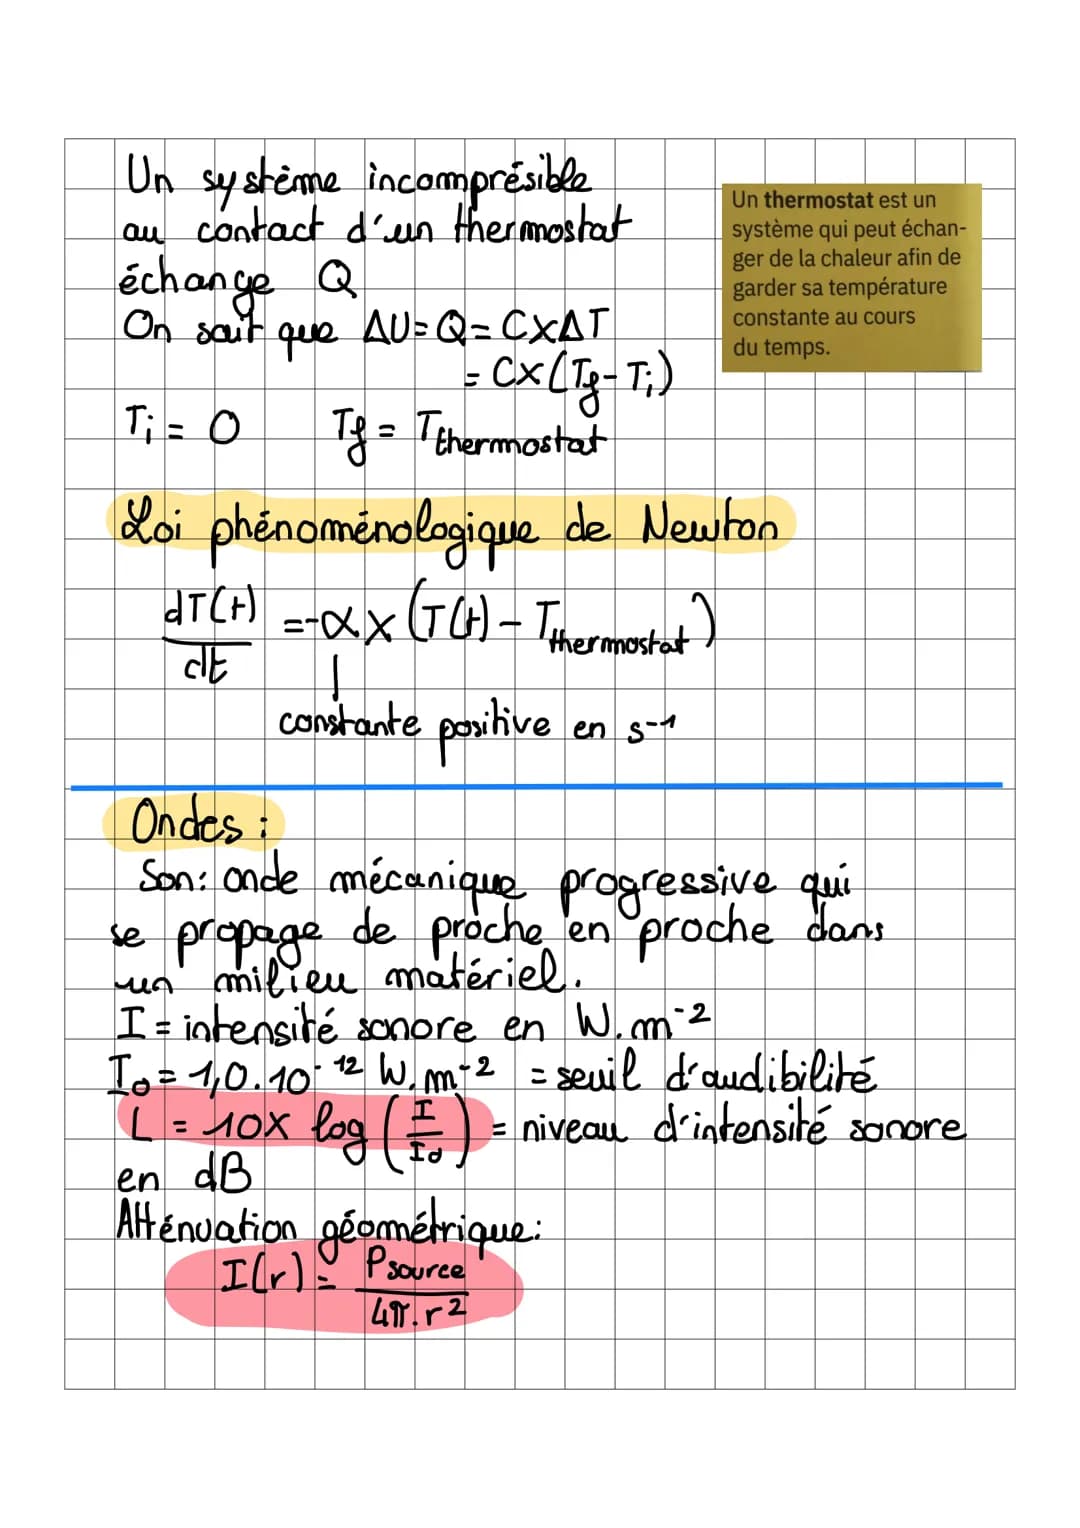 Un système incomprésible
au contact d'un thermostat
échange Q
On sait que ΔU = Q = C×ΔT
= C×(Tf - Ti)
Ti = 0 Tf = Tthermostat
Un thermostat est un
système qui peut échan-
ger de la chaleur afin de
garder sa température
constante au cours
du temps.
Loi phénoménologique de Newton
dT(t)/dt = -α × (T(t) - Tthermostat)
constante positive en s⁻¹
Ondes :
Son: onde mécanique progressive qui
se propage de proche en proche dans
un milieu matériel.
I = intensité sonore en W.m⁻²
I₀ = 1,0.10⁻¹² W.m⁻² = seuil d'audibilité
L = 10× log (I/I₀) = niveau d'intensité sonore
en dB
Atténuation géométrique:
I(r) = Psource/4π.r²